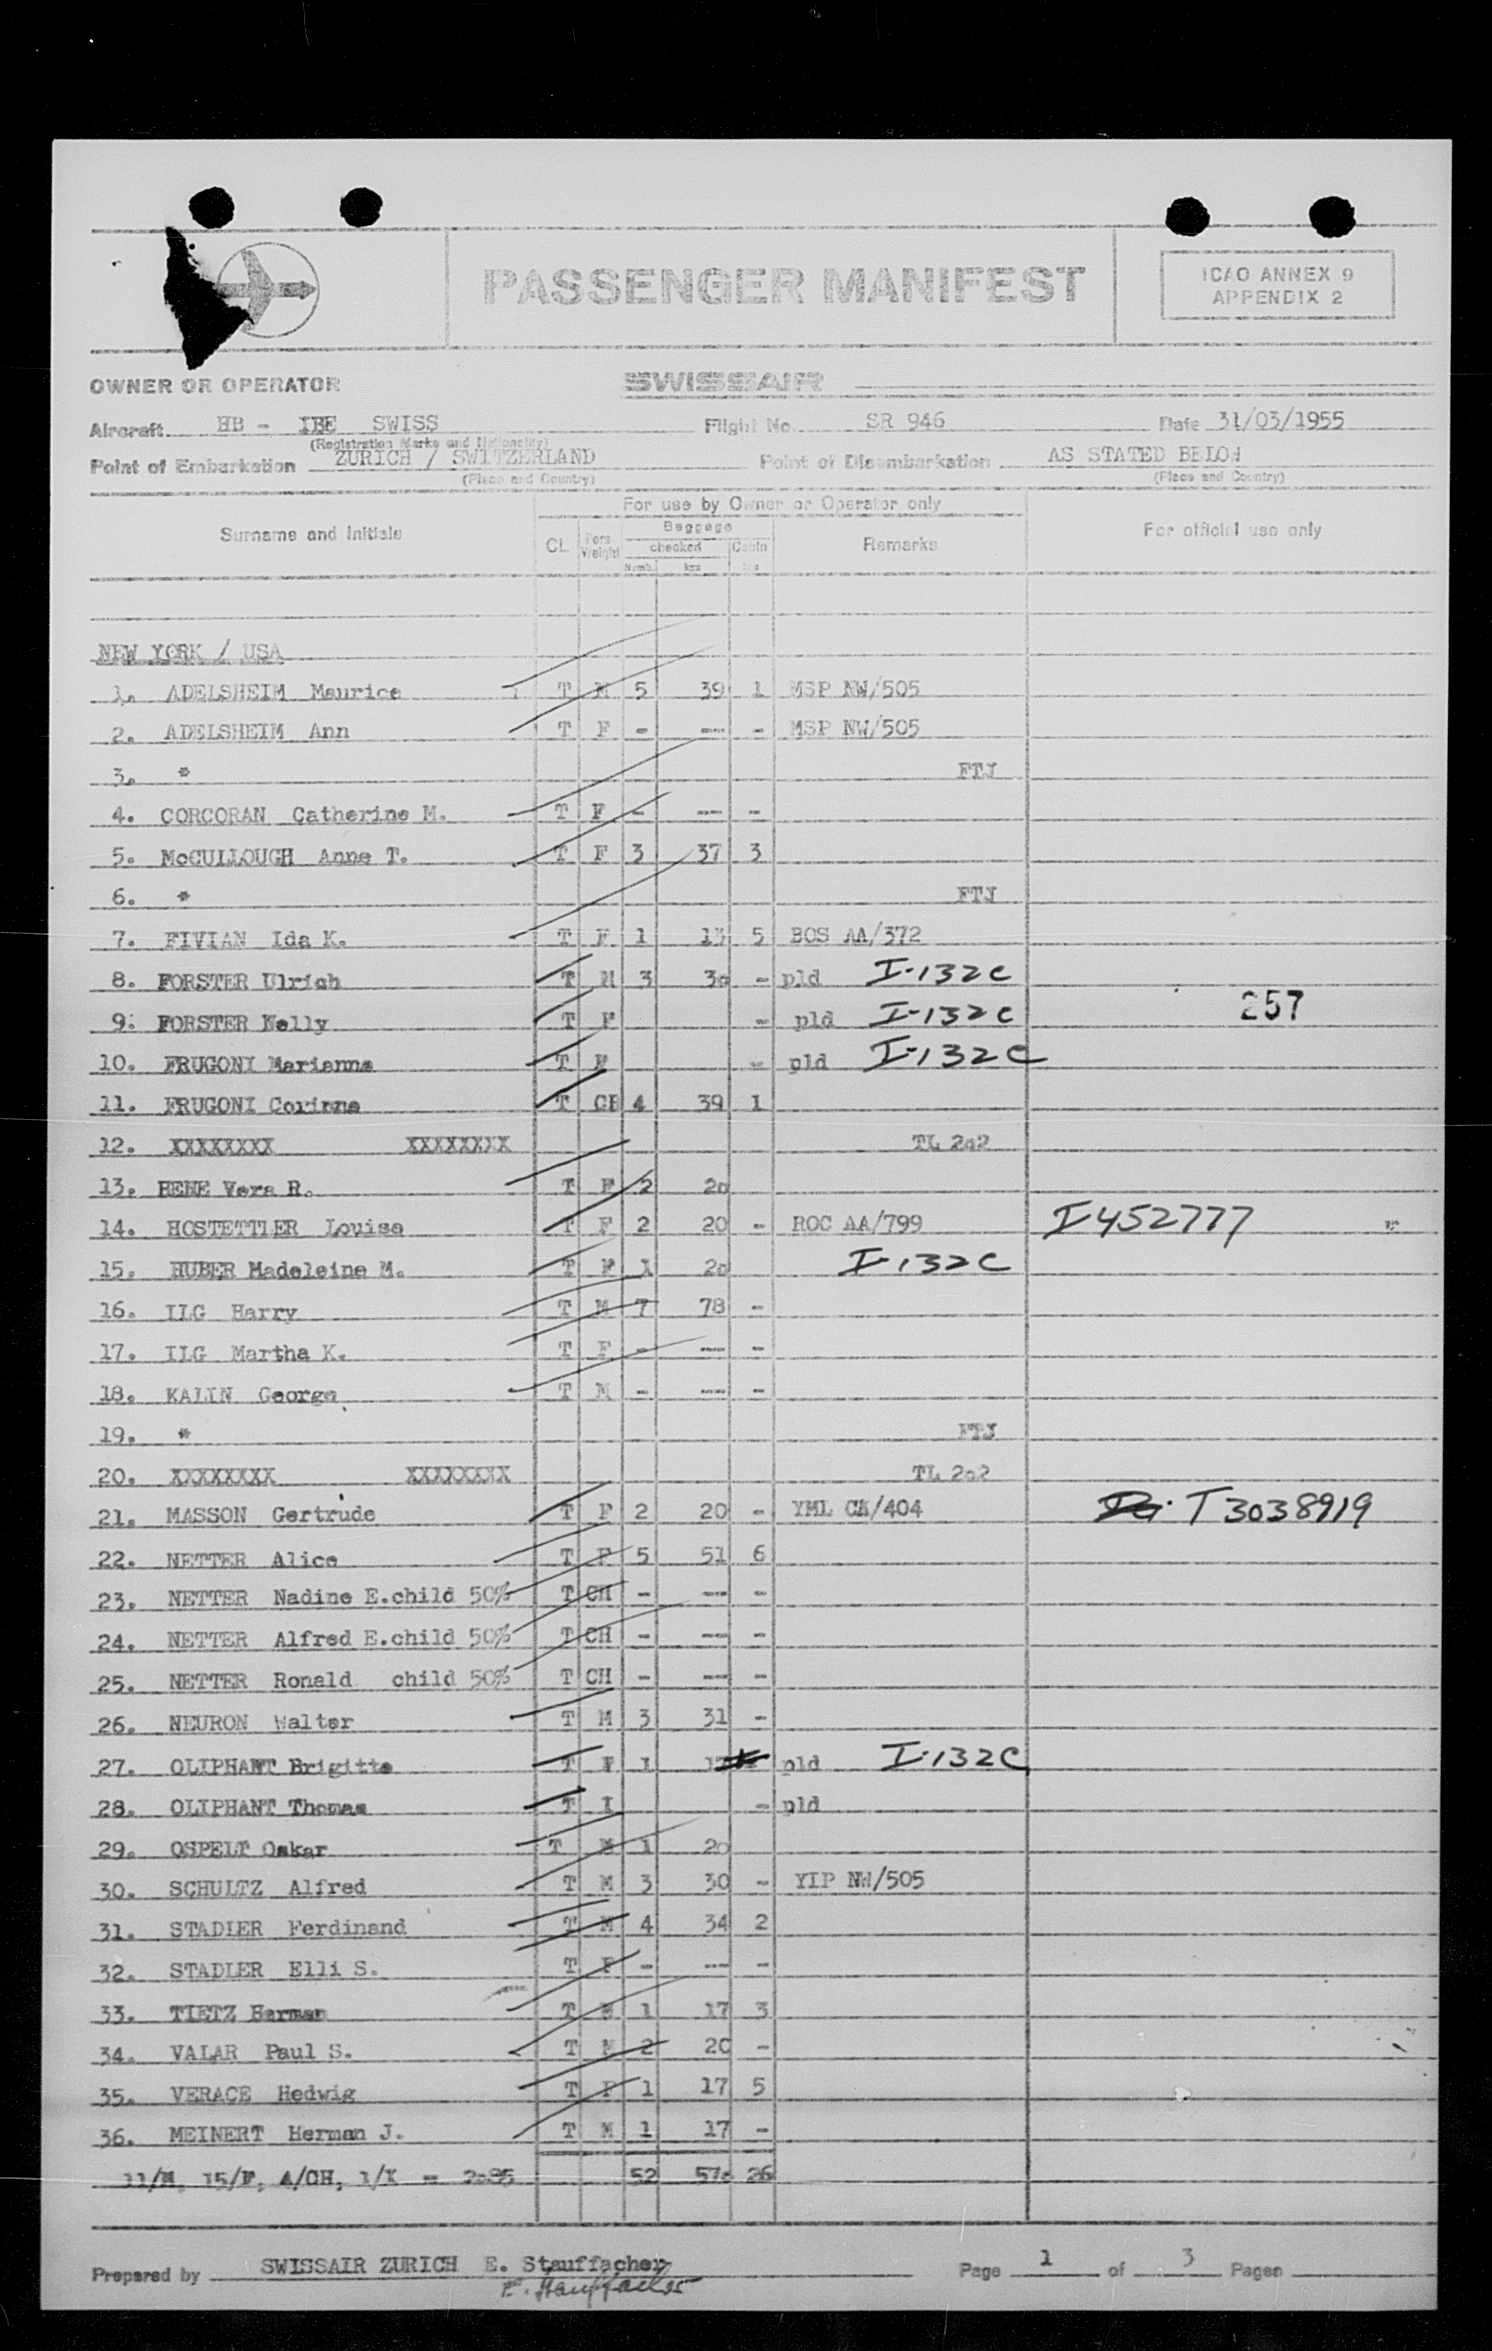 PASSENGER MANIFEST
ICAO ANNEX 9
APPENDIX 2
OWNER OR OPERATOR SWISSAIR
Aircraft HB - IBE SWISS Flight No. SR 946 Date 31/03/1955
(Registration Marks and Nationality)
Point of Embarkation ZURICH / SWITZERLAND Point of Disembarkation AS STATED BELOW
(Place and Country) (Place and Country)
For use by Owner or Operator only
Surname and Initials CL Pers. Weight Baggage checked Numb. kgs Cabin kgs Remarks For official use only
NEW YORK / USA
1. ADELSHEIM Maurice T M 5 39 1 MSP NW/505
2. ADELSHEIM Ann T F - --- - MSP NW/505
3. * FTJ
4. CORCORAN Catherine M. T F - --- -
5. McCULLOUGH Anne T. T F 3 37 3
6. * FTJ
7. FIVIAN Ida K. T F 1 13 5 BOS AA/372
8. FORSTER Ulrich T M 3 30 - pld I-132C
9. FORSTER Nelly T F - pld I-132C 257
10. FRUGONI Marianne T F - pld I-132C
11. FRUGONI Corinne T CH 4 39 1
12. XXXXXXXX XXXXXXXX TL 202
13. BENE Vera R. T F 2 20
14. HOSTETTLER Louise T F 2 20 - ROC AA/799 I452777
15. HUBER Madeleine M. T F 1 20 I-132C
16. ILG Harry T M 7 78 -
17. ILG Martha K. T F - --- -
18. KALIN George T M - --- -
19. * FTJ
20. XXXXXXXX XXXXXXXX TL 202
21. MASSON Gertrude T F 2 20 - YML CA/404 T3038919
22. NETTER Alice T F 5 51 6
23. NETTER Nadine E.child 50% T CH - --- -
24. NETTER Alfred E.child 50% T CH - --- -
25. NETTER Ronald child 50% T CH - --- -
26. NEURON Walter T M 3 31 -
27. OLIPHANT Brigitte T F 1 pld I-132C
28. OLIPHANT Thomas T I - pld
29. OSPELT Oskar T M 1 20
30. SCHULTZ Alfred T M 3 30 - YIP NW/505
31. STADLER Ferdinand T M 4 34 2
32. STADLER Elli S. T F - --- -
33. TIETZ Herman T M 1 17 3
34. VALAR Paul S. T M 2 20 -
35. VERACE Hedwig T F 1 17 5
36. MEINERT Herman J. T M 1 17 -
11/M, 15/F, 4/CH, 1/I = 52 570 26
Prepared by SWISSAIR ZURICH E. Stauffacher Page 1 of 3 Pages
E. Stauffacher